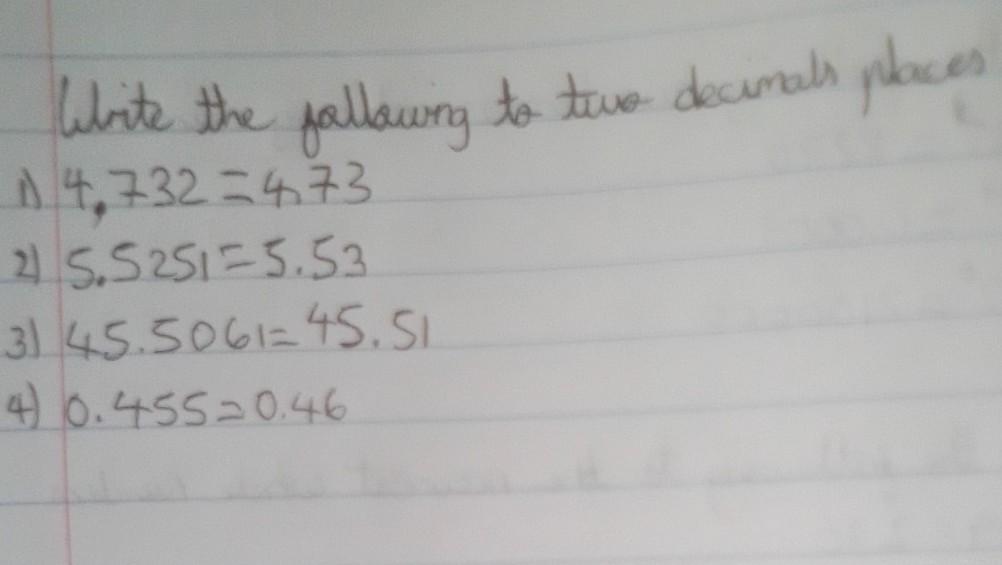 Write the following to two decimals places
1) 4,732 = 4,73
2) 5.5251 = 5.53
3) 45.5061 = 45.51
4) 0.455 = 0.46